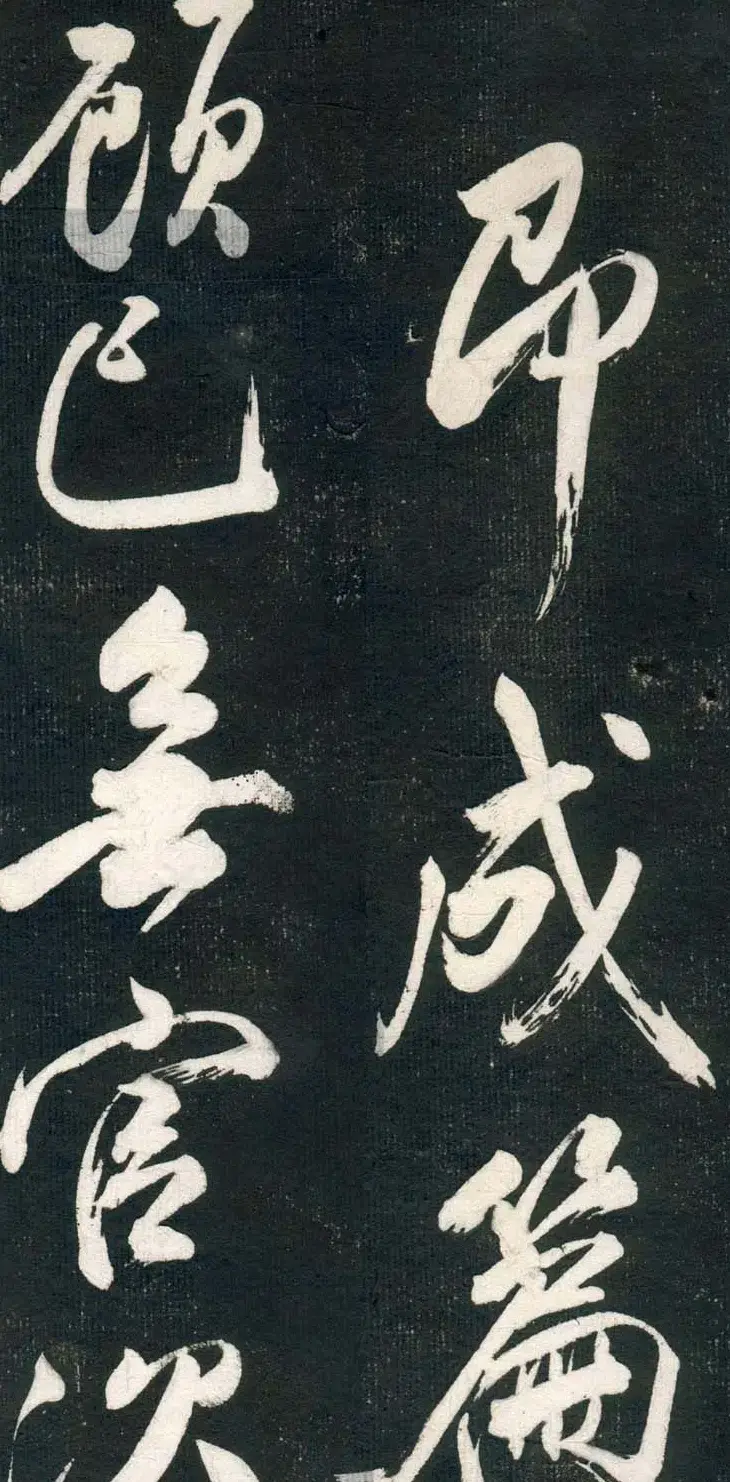 即成篇
顾已无官次